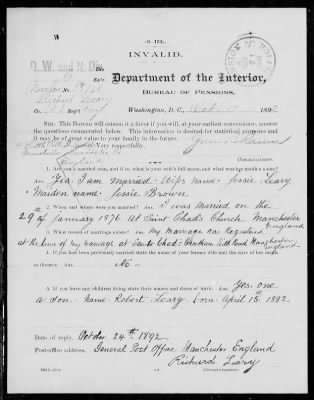 (3-173.)
INVALID.
O. W. and N. Div.
Department of the Interior,
BUREAU OF PENSIONS,
Washington, D. C., Oct 10, 1892
SIR: This Bureau will esteem it a favor if you will, at your earliest convenience, answer
the questions enumerated below. This information is desired for statistical purposes, and
it may be of great value to your family.
Very respectfully,
England
Commissioner.
1. Are you a married man, and if so, what is your wife's full name, and what was her maiden name?
Ans. Yes. I am married - Wifes name - Jessie Leary
Maiden name: Jessie Brown.
2. When and where were you married? Ans. I was married on the
29 of January 1876 At Saint Chad's Church Manchester
England
3. What record of marriage exists? Ans. My Marriage was Registered
at the time of my marriage at Saint Chad's Cheetham Hill Road Manchester
England
4. If you had been previously married state the name of your former wife and the date of her death
or divorce. Ans. No -
5. If you have any children living state their names and dates of birth. Ans. Yes. one
a Son. Name Robert Leary. Born April 15th 1882
Date of reply, October 24th 1892
Post-office address, General Post Office Manchester England
Richard Leary